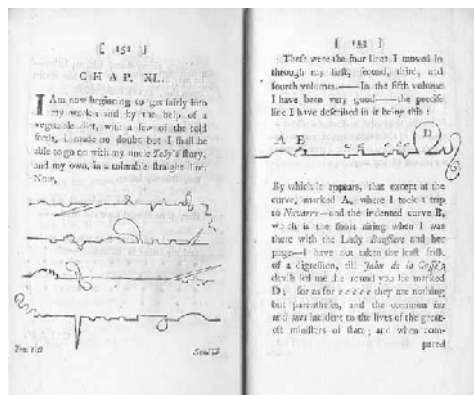 [ 152 ]
C H A P. XL.
I Am now beginning to get fairly into
my work; and by the help of a
vegetable diet, with a few of the cold
ſeeds, I make no doubt but I ſhall be
able to go on with my uncle Toby's ſtory,
and my own, in a tolerable ſtraight line.
Now,
[ 153 ]
Theſe were the four lines I moved in
through my firſt, ſecond, third, and
fourth volumes.——In the fifth volume
I have been very good——the preciſe
line I have deſcribed in it being this :
A B D
By which it appears, that except at the
curve, marked A, where I took a trip
to Navarre—and the indented curve B,
which is the ſhort airing when I was
there with the Lady Bauſſiere and her
page—I have not taken the leaſt friſk
of a digreſſion, till John de la Caſſe's
devils led me the round you ſee marked
D; for as for c c c c c they are nothing
but parentheſes, and the common ins
and outs incident to the lives of the great-
eſt miniſters of ſtate; and when com-
pared